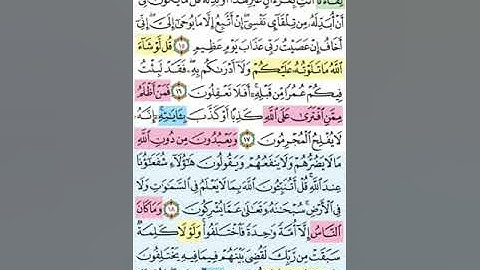 لِقَآءَنَا ٱئْتِ بِقُرْءَانٍ غَيْرِ هَٰذَآ أَوْ بَدِّلْهُ قُلْ مَا يَكُونُ لِىٓ
أَنْ أُبَدِّلَهُۥ مِن تِلْقَآئِ نَفْسِىٓ إِنْ أَتَّبِعُ إِلَّا مَا يُوحَىٰٓ إِلَىَّ إِنِّىٓ
أَخَافُ إِنْ عَصَيْتُ رَبِّى عَذَابَ يَوْمٍ عَظِيمٍ ١٥ قُل لَّوْ شَآءَ
ٱللَّهُ مَا تَلَوْتُهُۥ عَلَيْكُمْ وَلَآ أَدْرَىٰكُم بِهِۦ فَقَدْ لَبِثْتُ
فِيكُمْ عُمُرًا مِّن قَبْلِهِۦٓ أَفَلَا تَعْقِلُونَ ١٦ فَمَنْ أَظْلَمُ
مِمَّنِ ٱفْتَرَىٰ عَلَى ٱللَّهِ كَذِبًا أَوْ كَذَّبَ بِـَٔايَٰتِهِۦٓ إِنَّهُۥ
لَا يُفْلِحُ ٱلْمُجْرِمُونَ ١٧ وَيَعْبُدُونَ مِن دُونِ ٱللَّهِ
مَا لَا يَضُرُّهُمْ وَلَا يَنفَعُهُمْ وَيَقُولُونَ هَٰٓؤُلَآءِ شُفَعَٰٓؤُنَا
عِندَ ٱللَّهِ قُلْ أَتُنَبِّـُٔونَ ٱللَّهَ بِمَا لَا يَعْلَمُ فِى ٱلسَّمَٰوَٰتِ وَلَا
فِى ٱلْأَرْضِ سُبْحَٰنَهُۥ وَتَعَٰلَىٰ عَمَّا يُشْرِكُونَ ١٨ وَمَا كَانَ
ٱلنَّاسُ إِلَّآ أُمَّةً وَٰحِدَةً فَٱخْتَلَفُوا۟ وَلَوْلَا كَلِمَةٌ
سَبَقَتْ مِن رَّبِّكَ لَقُضِىَ بَيْنَهُمْ فِيمَا فِيهِ يَخْتَلِفُونَ